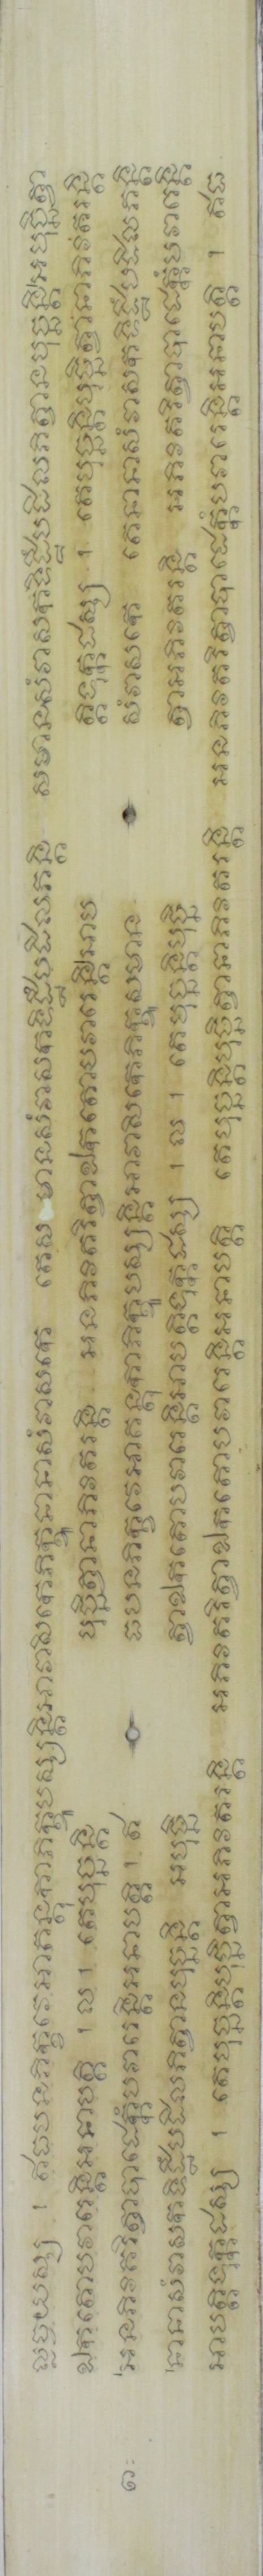 ល្លច្ចយស្ស ។ ឥធបនភិក្ខវេអាគន្តុកាភិក្ខូបស្សន្តិអាវាសិកេភិក្ខូនានាសំវាសកេ តេស មានសំវាសកទិដ្ឋឹបដិលភន្តិ សមានសំវាសកទិដ្ឋឹបដិលភិត្វានបុច្ឆន្តិអបុច្ឆិត្វា
ឯកតោបវារេន្តិអនាបត្តិ ។ ល ។ តេបុច្ឆន្តិ បុច្ឆិត្វានាភិវតរន្តិ អនភិវតរិត្វាឯកតោបវារេន្តិអាប ត្តិទុក្កដស្ស ។ តេបុច្ឆន្តិបុច្ឆិត្វានាភិវតរន្តិ
អនភិវតរិត្វាបាដេក្កំបវារេន្តិអនាបត្តិ ។ ឥ ធបនភិក្ខវេអាគន្តុកាភិក្ខូបស្សន្តិអាវាសិកេភិក្ខូសមាន សំវាសកេ តេនានាសំវាសកទិដ្ឋឹបដិលភន្តិ
នានាសំវាសកទិដ្ឋឹបដិលភិត្វានបុច្ឆន្តិ អបុច្ឆិ ត្វាឯកតោបវារេន្តិអាបត្តិទុក្កដស្ស ។ ល ។ តេបុច្ឆន្តិបុច្ឆិ ត្វាអភិវតរន្តិ អភិវតរិត្វាបាដេក្កំបវារេន្តិ
អាបត្តិទុក្កដស្ស ។ តេបុច្ឆន្តិបុច្ឆិត្វាអភិវតរន្តិ អភិវតរិត្វាឯកតោបវារេន្តិអនាបត្តិ តេបុច្ឆន្តិបុច្ឆិត្វានាភិវតរន្តិ អនភិវតរិត្វាបាដេក្កំបវារេន្តិអនាបត្តិ ។ ឥធ